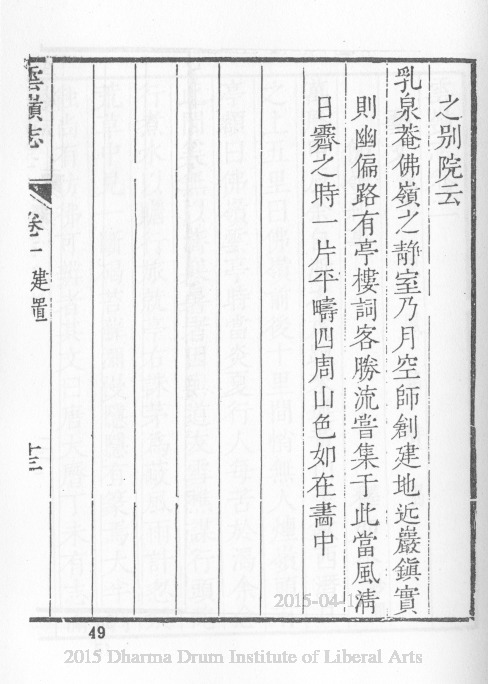 之别院云
乳泉菴佛嶺之靜室乃月空師創建地近巖鎮實
則幽偏路有亭樓詞客勝流嘗集于此當風清
日霽之時一片平疇四周山色如在畵中
雲嶺志
卷一 建置
十二
49
2015-04-1
2015 Dharma Drum Institute of Liberal Arts